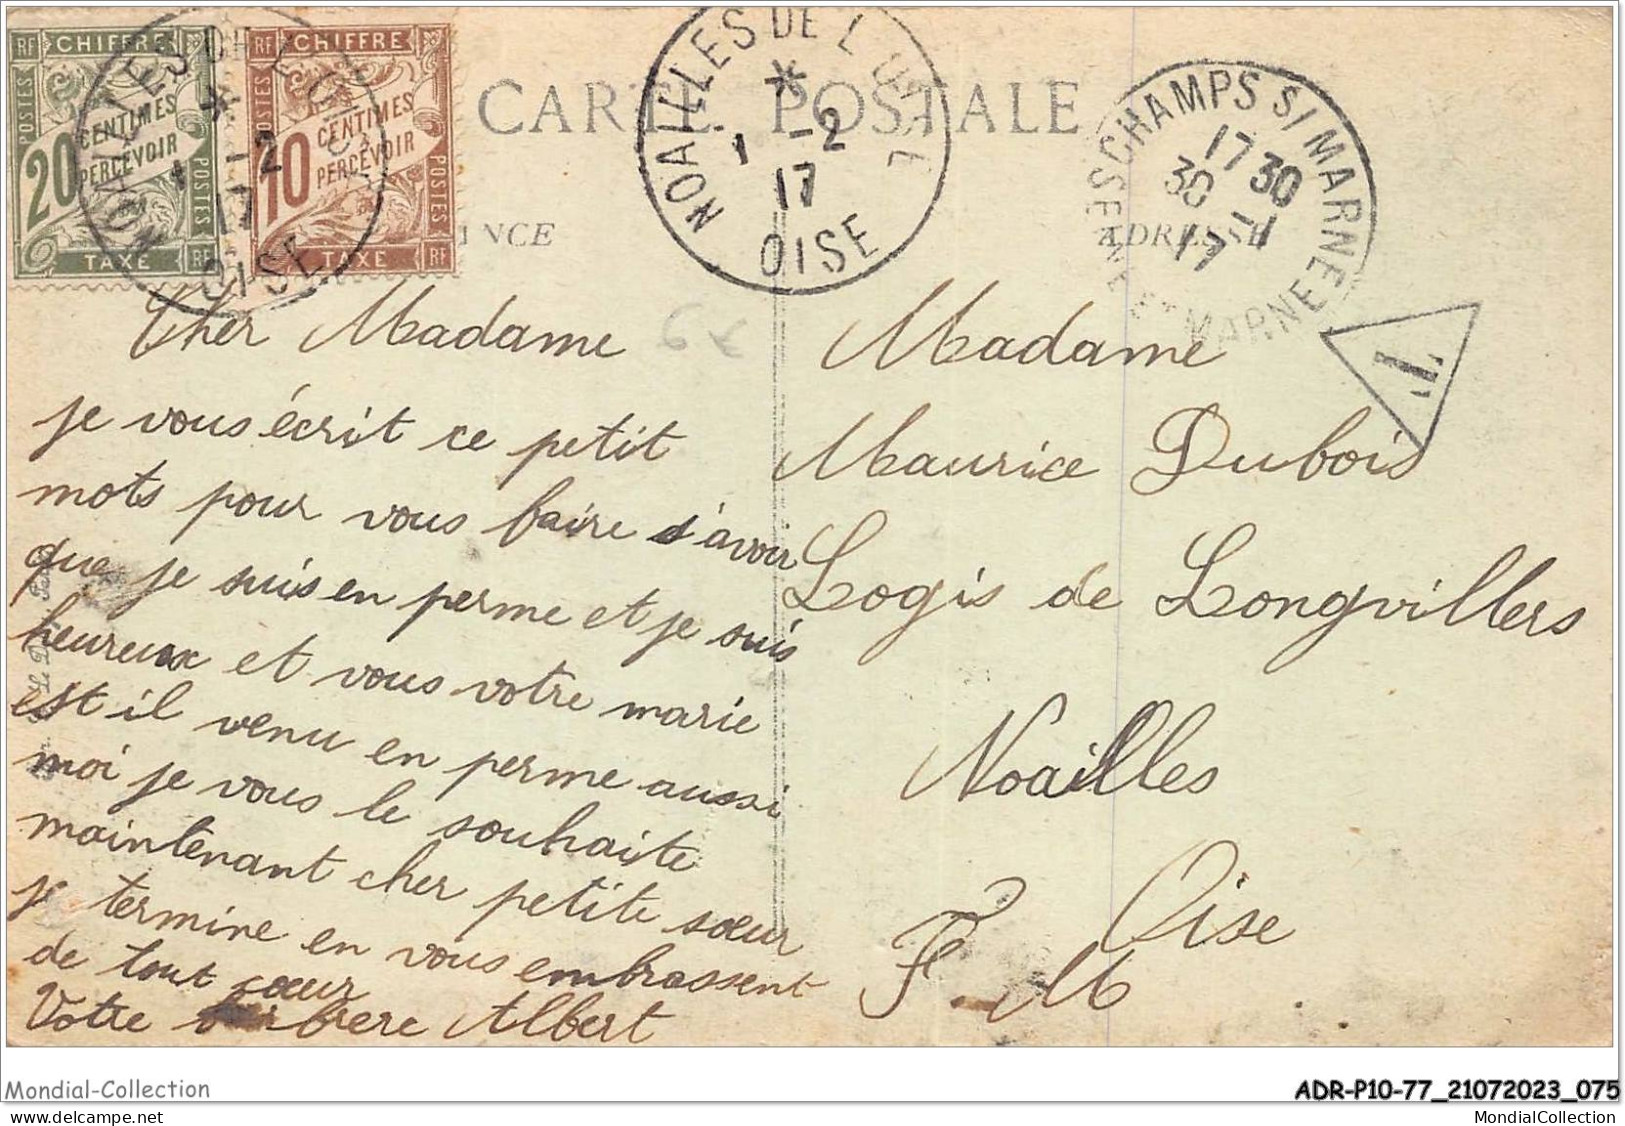 RF CHIFFRE
POSTES
20 CENTIMES
PERCEVOIR
POSTES
TAXE RF
RF CHIFFRE
POSTES
10 CENTIMES
PERCEVOIR
POSTES
TAXE RF
1 -2
17
OISE
CARTE POSTALE
NOAILLES DE L'OISE
1 -2
17
OISE
CHAMPS S/ MARNE
17 30
30 -1
17
SEINE ET MARNE
ADRESSE
T
Cher Madame
je vous écrit ce petit
mots pour vous faire s'avoir
que je suis en perme et je suis
heureux et vous votre marie
est il venu en perme aussi
moi je vous le souhaite
maintenant cher petite sœur
je termine en vous embrassent
de tout cœur
Votre frere Albert
Madame
Maurice Dubois
Logis de Longvillers
Noailles
Oise
F. M
Mondial-Collection
ADR-P10-77_21072023_075
MondialCollection